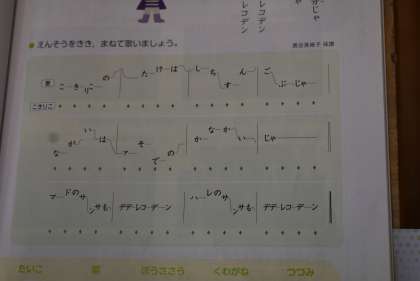 デデレコデン
えんそうをきき、まねて歌いましょう。
歌
こきりこの たけは しちすん ごぶじゃ
こきりこ
ながいは そでの かなかいじゃ
マドのサンサも デデレコデーン ハレのサンサも デデレコデーン
たいこ
ぼうざさら
くわがね
つづみ